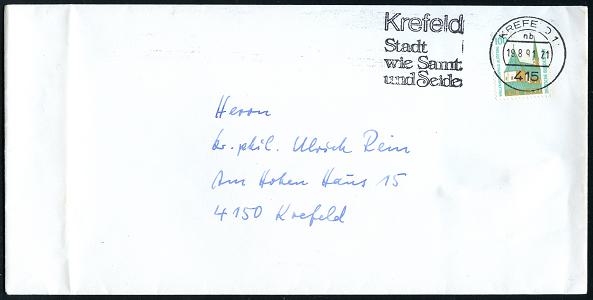 Krefeld
Stadt
wie Samt
und Seide
KREFELD 1
nb
19.8.91.21
415
Herrn
Dr. phil. Ulrich Rein
Am Hohen Haus 15
4150 Krefeld